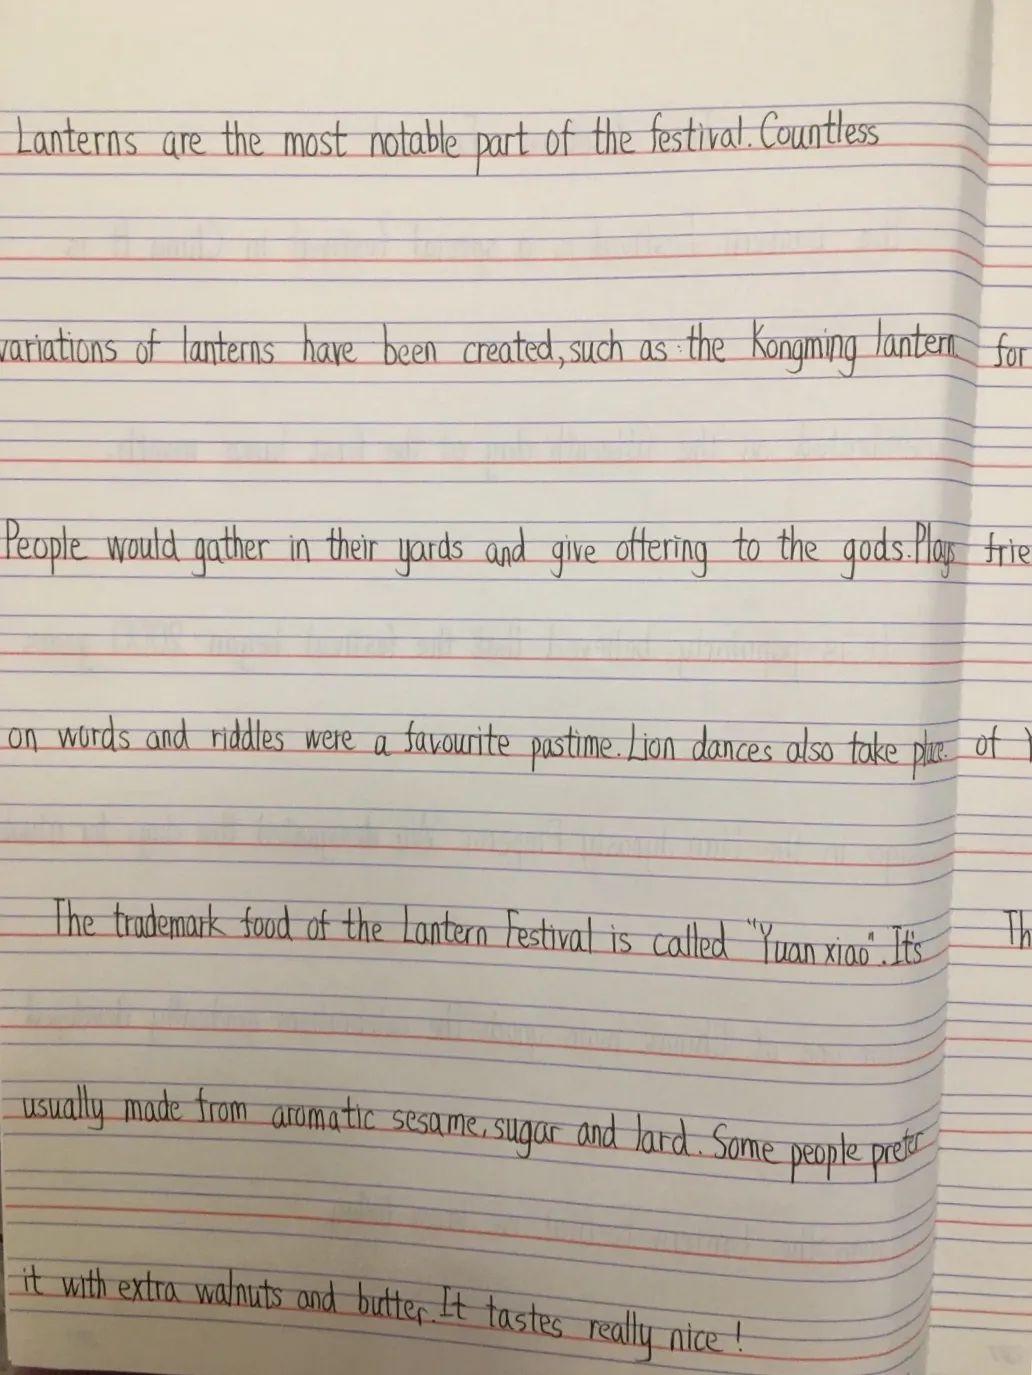 Lanterns are the most notable part of the festival. Countless
variations of lanterns have been created, such as the Kongming lantern
People would gather in their yards and give offering to the gods. Plays
on words and riddles were a favourite pastime. Lion dances also take place.
The trademark food of the Lantern Festival is called "Yuan xiao". It's
usually made from aromatic sesame, sugar and lard. Some people prefer
it with extra walnuts and butter. It tastes really nice!
for
frie
of
Th